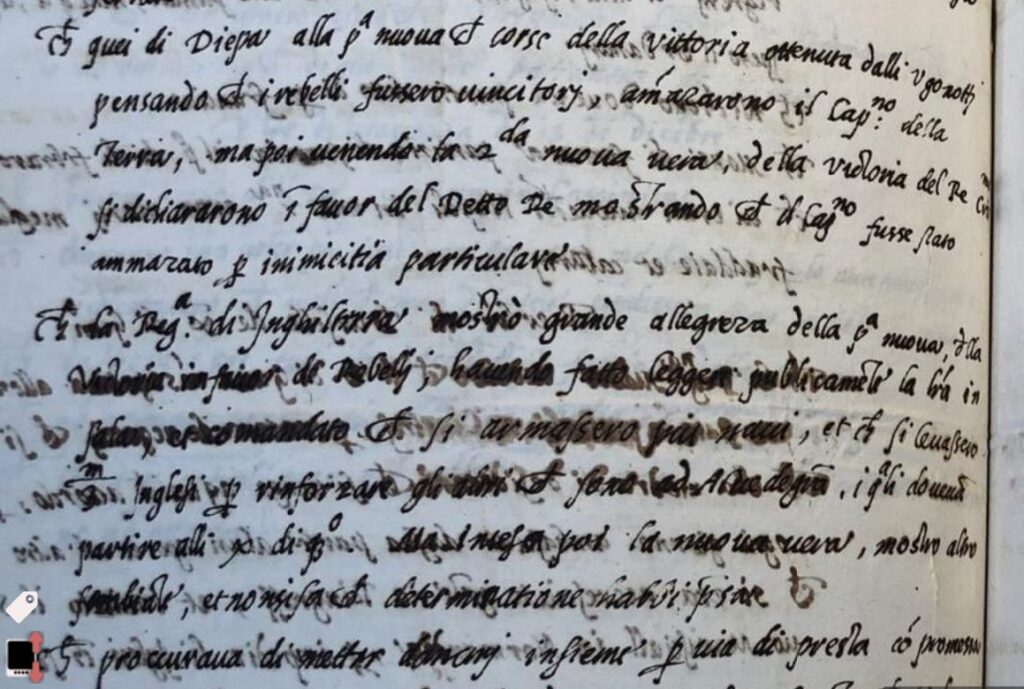 Ch quei di Diepa alla pa nuova ch corse della vittoria ottenuta dalli Ugonotti
pensando ch i rebelli fussero vincitorj, amazarono il Capno: della
Terra, ma poi venendo la 2da nuova vera, della victoria del Re
si dichiararono ī favor del Detto Re mostrando ch il Capno fusse stato
ammazato p inimicitia particulare
Ch la Rega: di Inghilterra mostrò grande allegreza della pa nuova, dlla
Victoria in favor di Rebellj, havendo fatto leggere publicamēte la lrā in
sala, et comandato ch si armassero più navi, et ch si levassero
Inglesi p rinforzare gli altri ch sono ad Avredegra, i qali
partire alli di qo Ma intesa poi la nuova vera, mostro altro
et non si sa ch determinatione
Ch proccurava di metter danarj insieme p via di presta cō promessa